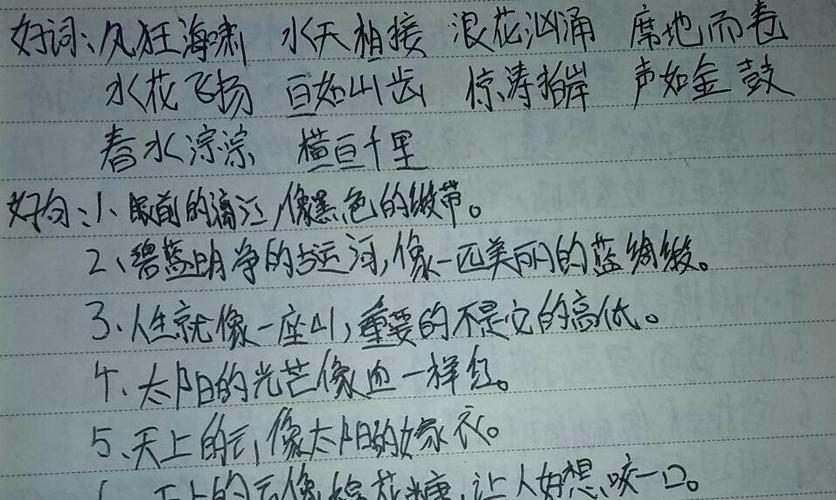 好词:风狂海啸 水天相接 浪花汹涌 席地而卷
水花飞扬 白如山齿 惊涛拍岸 声如金鼓
春水淙淙 横亘千里
好句:1、眼前的漓江,像墨色的缎带。
2、碧蓝明净的运河,像一匹美丽的蓝绸缎。
3、人生就像一座山,重要的不是它的高低。
4、太阳的光芒像血一样红。
5、天上的云,像太阳的嫁衣。
天上的云像棉花糖,让人好想咬一口。